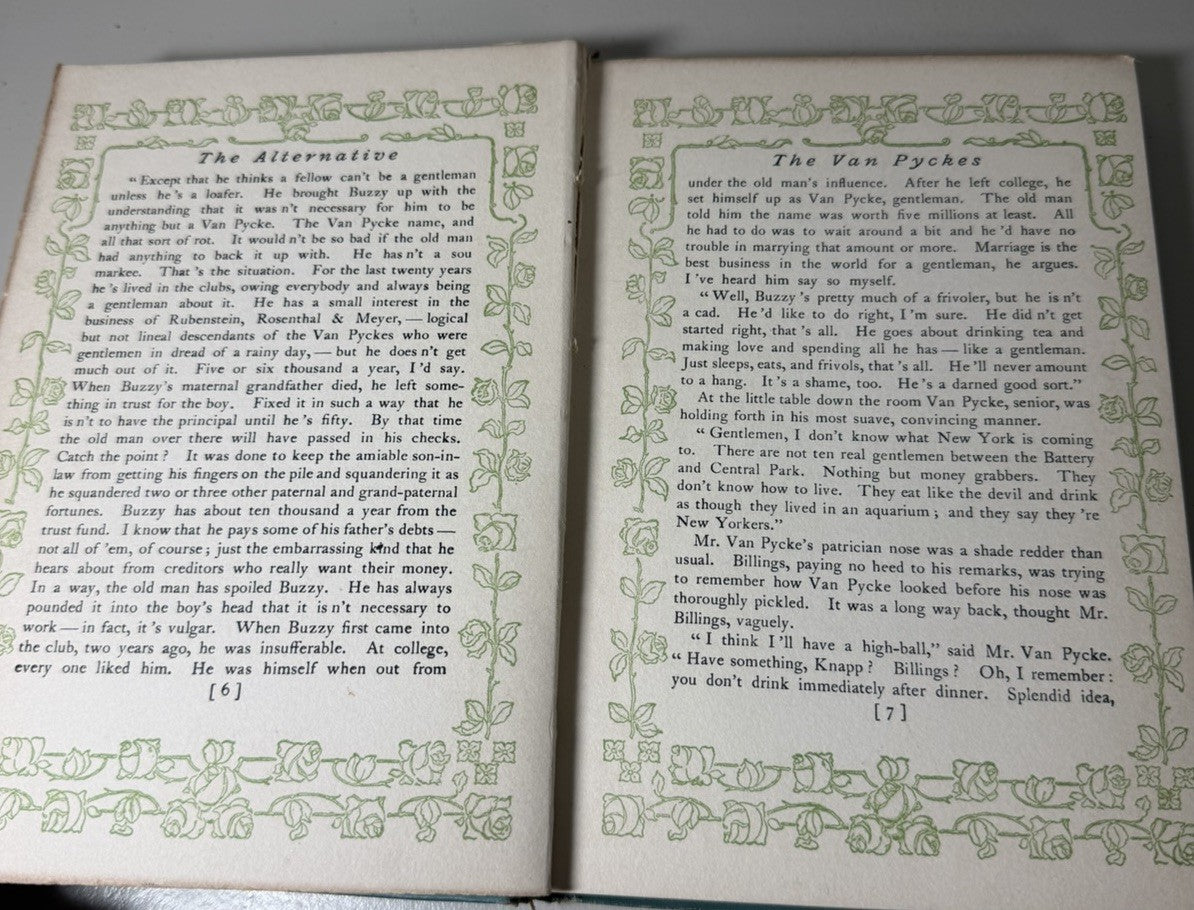 The Alternative
“Except that he thinks a fellow can't be a gentleman
unless he's a loafer. He brought Buzzy up with the
understanding that it was n't necessary for him to be
anything but a Van Pycke. The Van Pycke name, and
all that sort of rot. It would n't be so bad if the old man
had anything to back it up with. He has n't a sou
markee. That 's the situation. For the last twenty years
he 's lived in the clubs, owing everybody and always being
a gentleman about it. He has a small interest in the
business of Rubenstein, Rosenthal & Meyer, — logical
but not lineal descendants of the Van Pyckes who were
gentlemen in dread of a rainy day, — but he does n't get
much out of it. Five or six thousand a year, I'd say.
When Buzzy's maternal grandfather died, he left some-
thing in trust for the boy. Fixed it in such a way that he
is n't to have the principal until he 's fifty. By that time
the old man over there will have passed in his checks.
Catch the point? It was done to keep the amiable son-in-
law from getting his fingers on the pile and squandering it as
he squandered two or three other paternal and grand-paternal
fortunes. Buzzy has about ten thousand a year from the
trust fund. I know that he pays some of his father's debts —
not all of 'em, of course; just the embarrassing kind that he
hears about from creditors who really want their money.
In a way, the old man has spoiled Buzzy. He has always
pounded it into the boy's head that it is n't necessary to
work — in fact, it 's vulgar. When Buzzy first came into
the club, two years ago, he was insufferable. At college,
every one liked him. He was himself when out from
[6]
The Van Pyckes
under the old man's influence. After he left college, he
set himself up as Van Pycke, gentleman. The old man
told him the name was worth five millions at least. All
he had to do was to wait around a bit and he 'd have no
trouble in marrying that amount or more. Marriage is the
best business in the world for a gentleman, he argues.
I 've heard him say so myself.
“Well, Buzzy 's pretty much of a frivoler, but he is n't
a cad. He 'd like to do right, I 'm sure. He did n't get
started right, that 's all. He goes about drinking tea and
making love and spending all he has — like a gentleman.
Just sleeps, eats, and frivols, that 's all. He 'll never amount
to a hang. It 's a shame, too. He 's a darned good sort.”
At the little table down the room Van Pycke, senior, was
holding forth in his most suave, convincing manner.
“Gentlemen, I don't know what New York is coming
to. There are not ten real gentlemen between the Battery
and Central Park. Nothing but money grabbers. They
don't know how to live. They eat like the devil and drink
as though they lived in an aquarium; and they say they 're
New Yorkers.”
Mr. Van Pycke's patrician nose was a shade redder than
usual. Billings, paying no heed to his remarks, was trying
to remember how Van Pycke looked before his nose was
thoroughly pickled. It was a long way back, thought Mr.
Billings, vaguely.
“I think I 'll have a high-ball,” said Mr. Van Pycke.
“Have something, Knapp? Billings? Oh, I remember:
you don't drink immediately after dinner. Splendid idea,
[7]